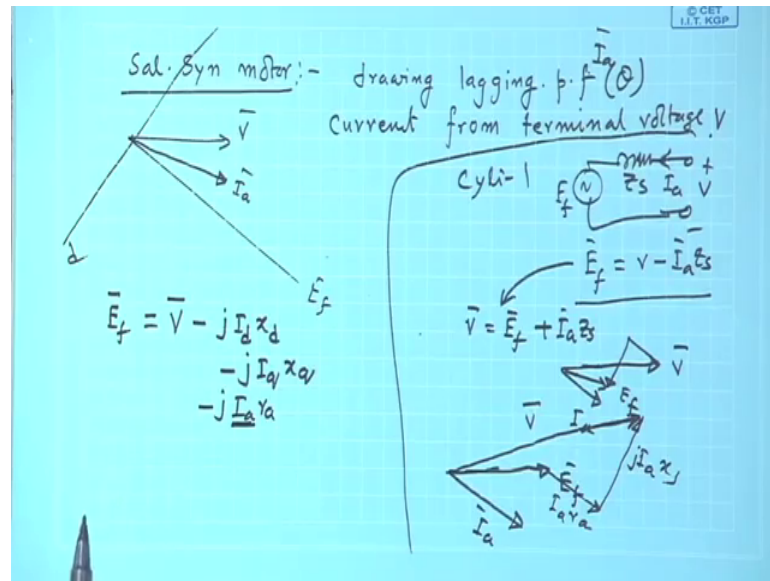 © CET
I.I.T. KGP
Sal. Syn motor :- drawing lagging. p. f Īa (θ)
Current from terminal voltage. V
V̄
Īa
d
Ēf
Ēf = V̄ - j Id xd
- j Iq xq
- j Ia ra
Cyli-1
Ef
~
Zs Ia V
+
Ēf = V - Īa Zs
V̄ = Ēf + Īa Zs
V̄
Ef
V̄
Ēf
Ia ra
j Ia xs
Īa